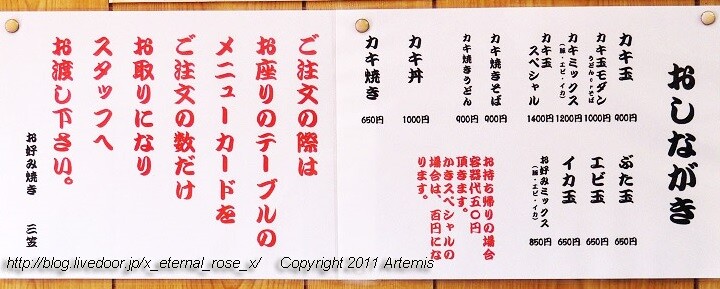 おしながき
カキ玉 900円
カキ玉モダン うどんorそば 1000円
カキミックス (豚・エビ・イカ) 1200円
カキ玉スペシャル 1400円
カキ焼きそば 900円
カキ焼きうどん 900円
カキ丼 1000円
カキ焼き 650円
ぶた玉 650円
エビ玉 650円
イカ玉 650円
お好みミックス (豚・エビ・イカ) 850円
お持ち帰りの場合
容器代五〇円
頂きます。
かきスペシャルの
場合は、百円にな
ります。
ご注文の際は
お座りのテーブルの
メニューカードを
ご注文の数だけ
お取りになり
スタッフへ
お渡し下さい。
お好み焼き 三笠
http://blog.livedoor.jp/x_eternal_rose_x/ Copyright 2011 Artemis